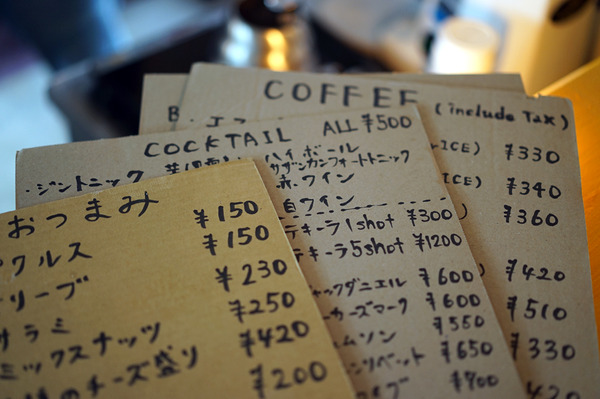 COFFEE (include Tax)
ICE) ¥330
ICE) ¥340
¥360
¥420
¥510
¥330
420
COCKTAIL ALL ¥500
・ジントニック ハイボール
サザンカンフォートトニック
赤ワイン
白ワイン
テキーラ1shot ¥300
テキーラ5shot ¥1200
ャックダニエル ¥600
ーカーズマーク ¥600
ムソン ¥550
¥650
¥700
おつまみ
ピクルス ¥150
オリーブ ¥150
サラミ ¥230
ミックスナッツ ¥250
のチーズ盛り ¥420
¥200